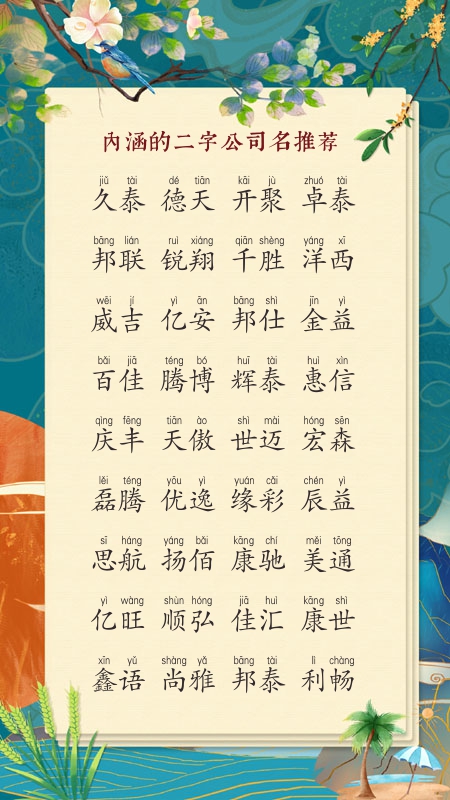 内涵的二字公司名推荐
jiǔ tài dé tiān kāi jù zhuó tài
久泰 德天 开聚 卓泰
bāng lián ruì xiáng qiān shèng yáng xī
邦联 锐翔 千胜 洋西
wēi jí yì ān bāng shì jīn yì
威吉 亿安 邦仕 金益
bǎi jiā téng bó huī tài huì xìn
百佳 腾博 辉泰 惠信
qìng fēng tiān ào shì mài hóng sēn
庆丰 天傲 世迈 宏森
lěi téng yōu yì yuán cǎi chén yì
磊腾 优逸 缘彩 辰益
sī háng yáng bǎi kāng chí měi tōng
思航 扬佰 康驰 美通
yì wàng shùn hóng jiā huì kāng shì
亿旺 顺弘 佳汇 康世
xīn yǔ shàng yǎ bāng tài lì chàng
鑫语 尚雅 邦泰 利畅